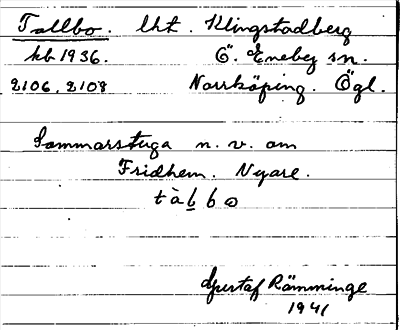 Tallbo. lht. Klingstadberg
kb 1936. Ö. Eneby sn.
2106, 2108 Norrköping. Ögl.
Sommarstuga n. v. om
Fridhem. Nyare.
tàbbo
Gustaf Rämminge
1941